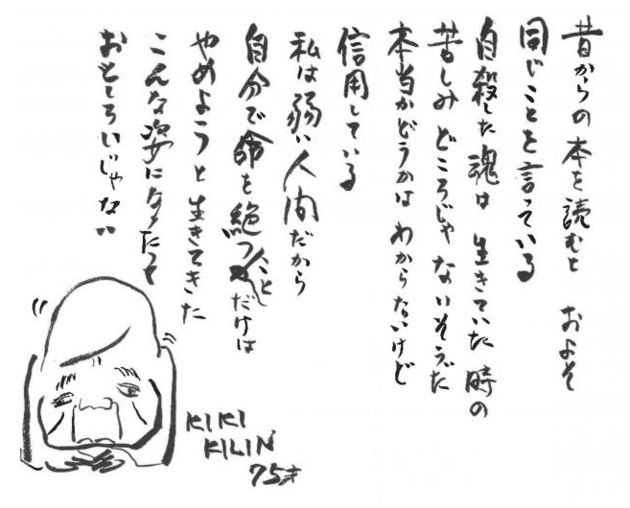 昔からの本を読むと およそ
同じことを言っている
自殺した魂は 生きていた時の
苦しみ どころじゃ ないそうだ
本当かどうかは わからないけど
信用している
私は弱い人間だから
自分で命を絶つことだけは
やめようと生きてきた
こんな姿になったって
おもしろいじゃない
KIKI
KILIN
75才